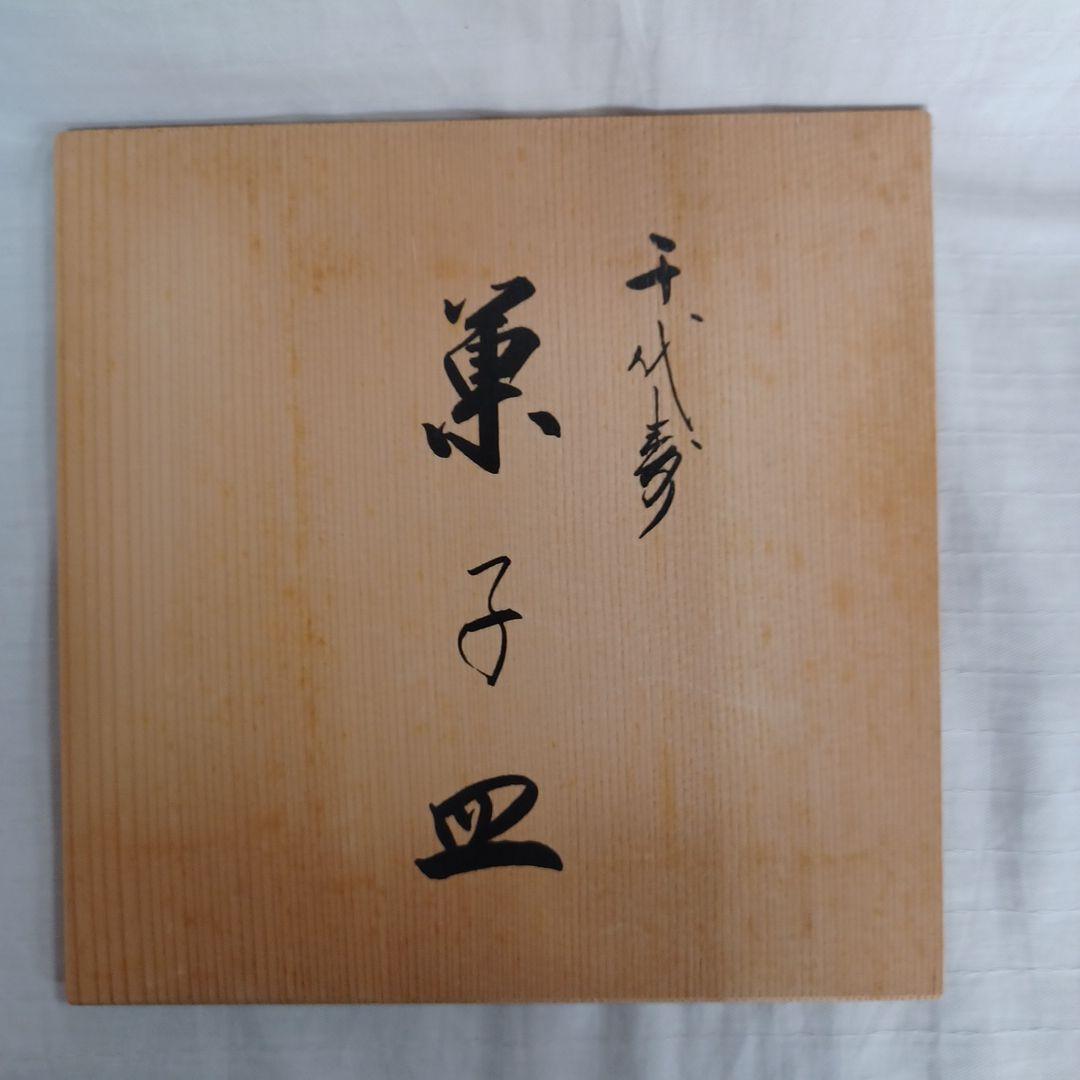 千代寿
菓子皿